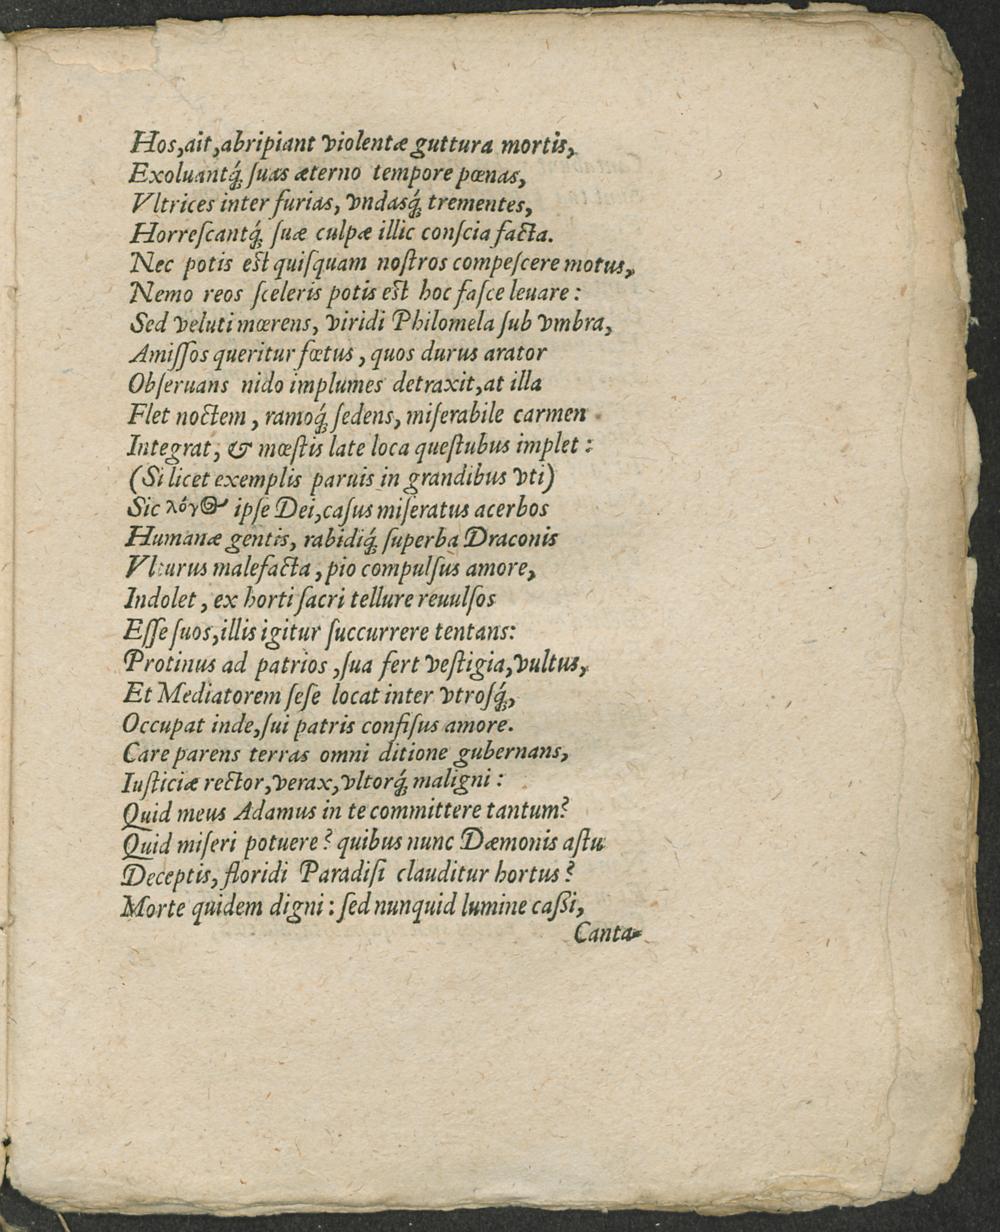 Hos,ait,abripiant violentæ guttura mortis,
Exoluantq́; ſuas æterno tempore pœnas,
Vltrices inter furias, vndasq́; trementes,
Horreſcantq́; ſuæ culpæ illic conſcia facta.
Nec potis eſt quiſquam noſtros compeſcere motus,
Nemo reos ſceleris potis eſt hoc faſce leuare:
Sed veluti mœrens, viridi Philomela ſub vmbra,
Amiſſos queritur fœtus, quos durus arator
Obſeruans nido implumes detraxit,at illa
Flet noctem, ramoq́; ſedens, miſerabile carmen
Integrat, & mœſtis late loca queſtubus implet:
(Si licet exemplis paruis in grandibus vti)
Sic λόγΘ ipſe Dei,caſus miſeratus acerbos
Humanæ gentis, rabidiq́; ſuperba Draconis
Vlturus malefacta, pio compulſus amore,
Indolet, ex horti ſacri tellure reuulſos
Eſſe ſuos,illis igitur ſuccurrere tentans:
Protinus ad patrios,ſua fert veſtigia,vultus,
Et Mediatorem ſeſe locat inter vtroſq́;,
Occupat inde,ſui patris confiſus amore.
Care parens terras omni ditione gubernans,
Iuſticiæ rector,verax,vltorq́; maligni:
Quid meus Adamus in te committere tantum?
Quid miſeri potuere? quibus nunc Dæmonis aſtu
Deceptis, floridi Paradiſi clauditur hortus?
Morte quidem digni: ſed nunquid lumine caßi,
Canta-